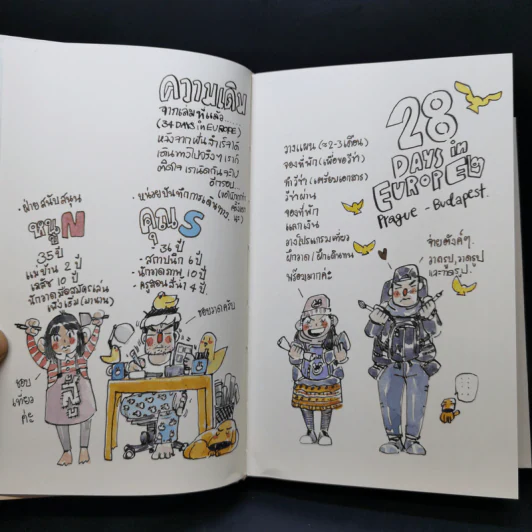 ความเดิม
จากเล่มที่แล้ว.....
(34 DAYS in EUROPE)
หลังจากฝันสำเร็จได้
เดินทางไปจริงๆ เราก็
ติดใจ เรานัดกันจะไป
อีกรอบ...
-ฝ่ายสนับสนุน
หนู N
35 ปี
แม่บ้าน 2 ปี
เลขาฯ 10 ปี
ชอบ
เที่ยว
ค่ะ
-หน่วยบันทึกการเดินทาง
คุณ S
36 ปี
- สถาปนิก 6 ปี
- นักวาดภาพ 10 ปี
- ครูสอนสีน้ำ 4 ปี.
ชอบวาดครับ
28
DAYS in
EUROPE ๒
Prague - Budapest.
วางแผน (≈ 2-3 เดือน)
จองที่พัก (เพื่อขอวีซ่า)
ทำวีซ่า (เตรียมเอกสาร)
วีซ่าผ่าน
จองที่พัก
แลกเงิน
วางโปรแกรมเที่ยว
ฝึกวาด / ฝึกเดินทน
พร้อมมากค่ะ
จ่ายตังค์ๆ.
วาดรูป, วาดรูป